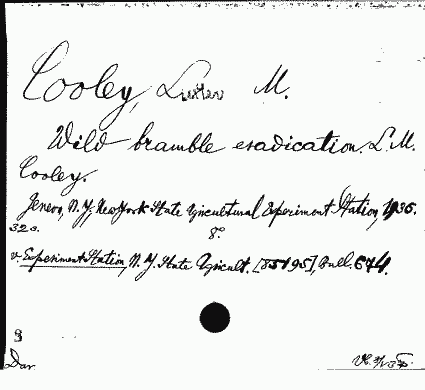 Cooley, M.
Wild bramble eradication. L. M.
Cooley.
Geneva, N. Y. New York State Agricultural Experiment Station, 1936.
32 p. 8°.
v. Experiment Station, N. Y. State Agricult. Bull. 674.